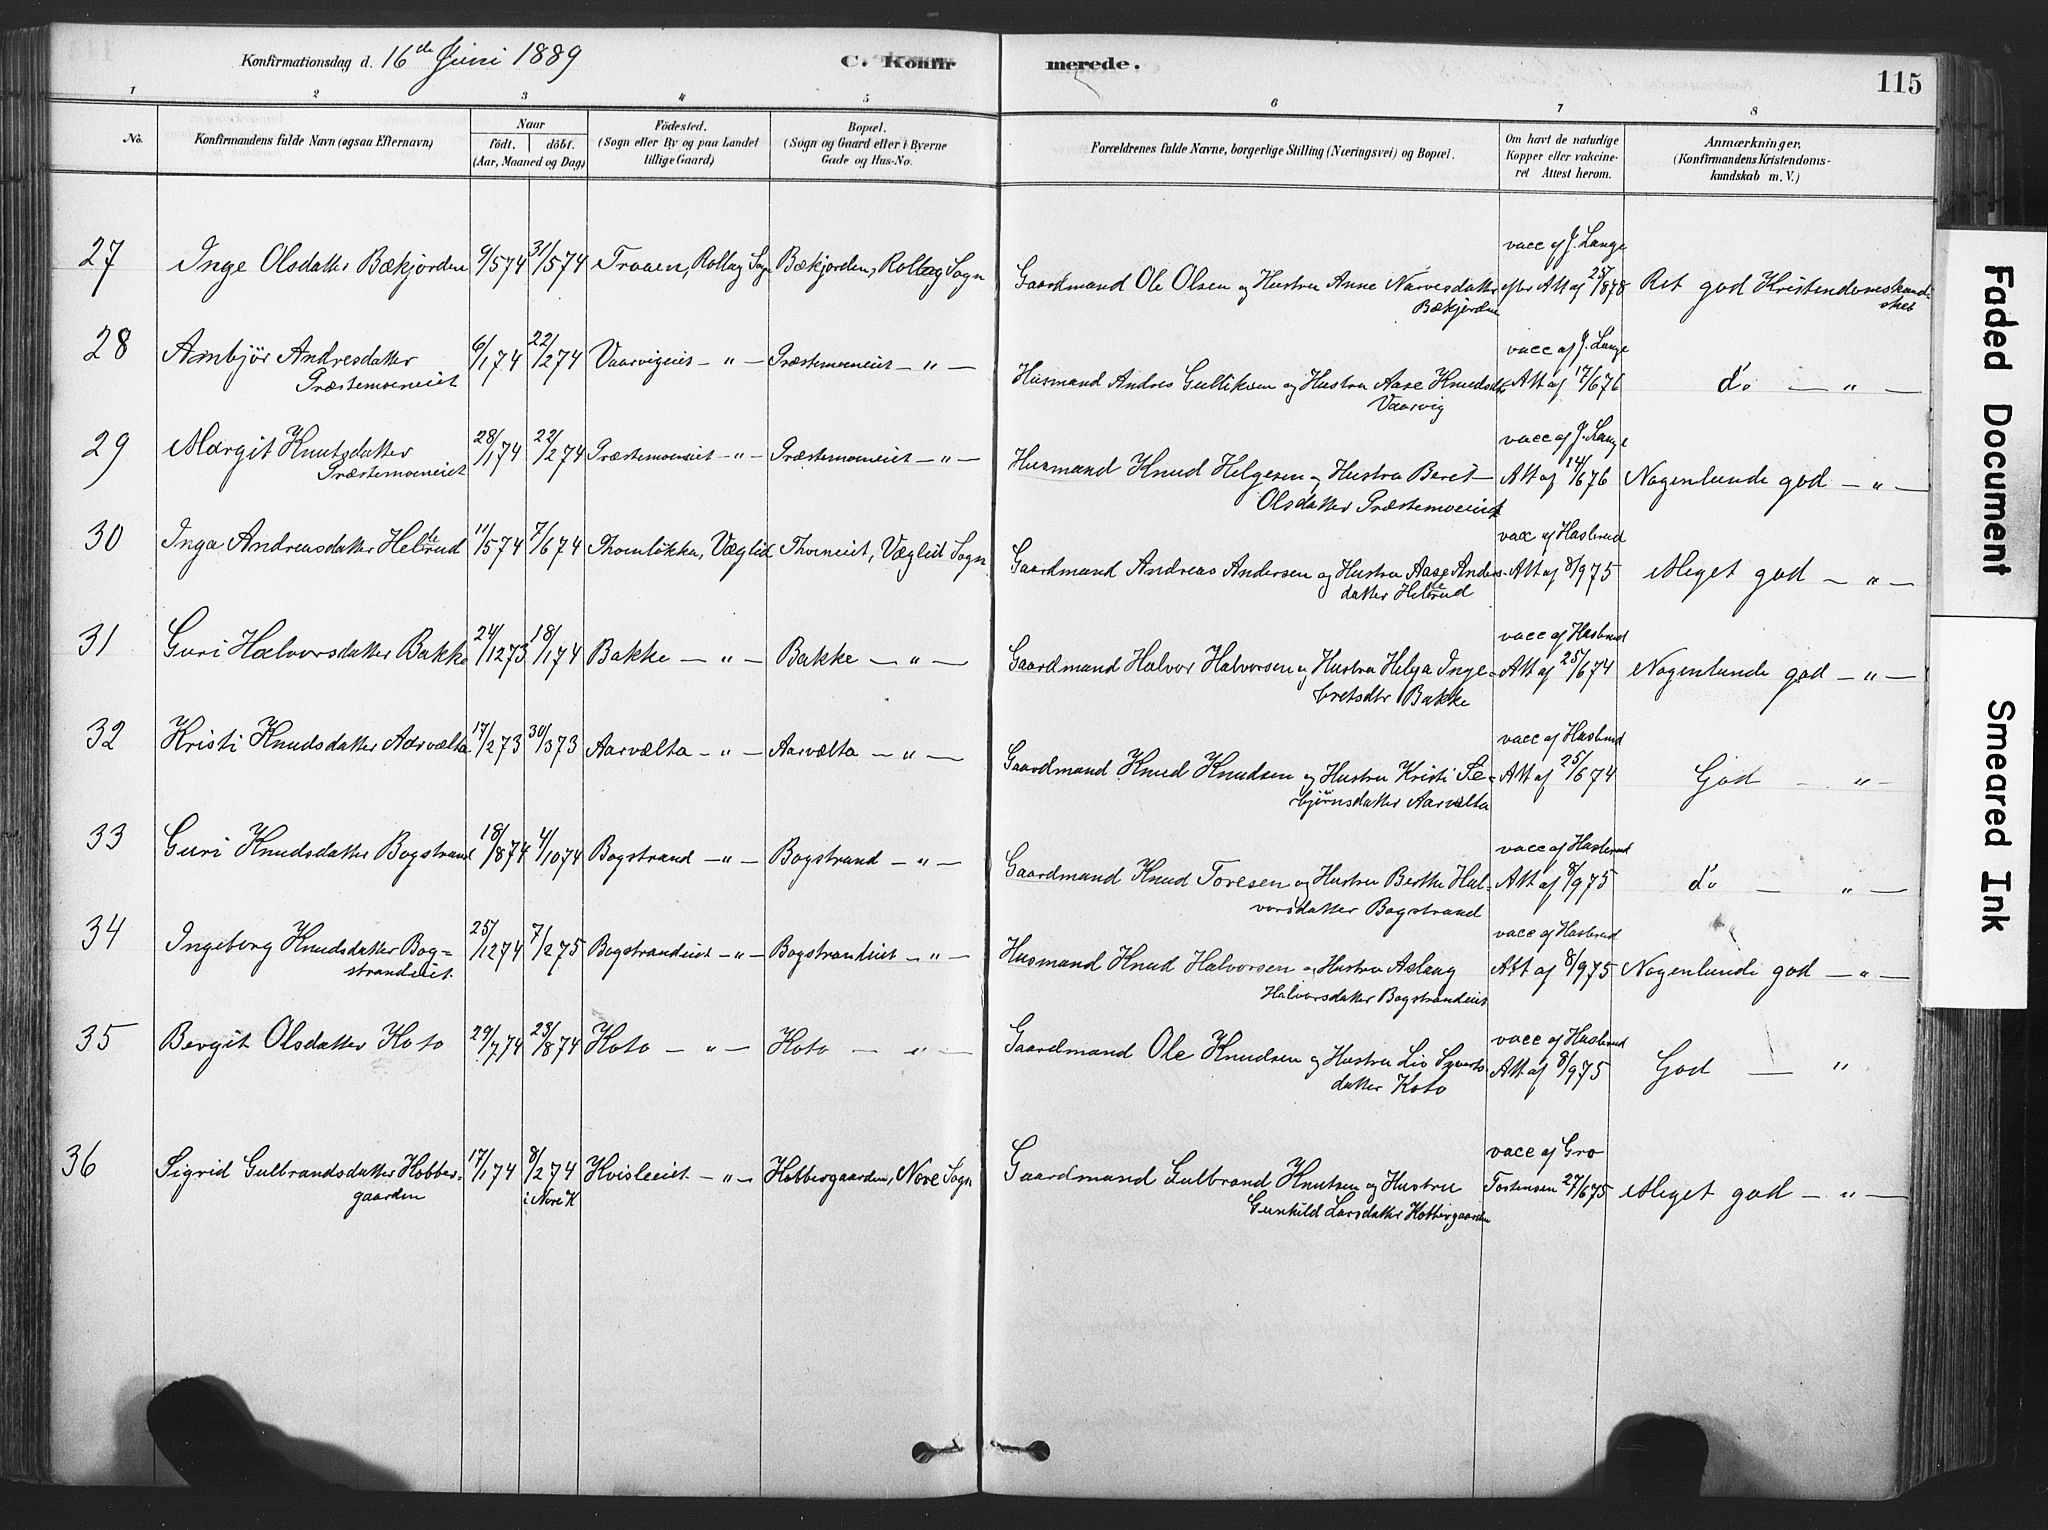 Konfirmationsdag d. 16de Juni 1889 C. Konfirmerede. 115
1 2 3 4 5 6 7 8
No. Konfirmandens fulde Navn (ogsaa Efternavn) Naar födt. döbt. (Aar, Maaned og Dag) Födested. (Sogn eller By og paa Landet tillige Gaard) Bopæl. (Sogn og Gaard eller i Byerne Gade og Hus-No. Forældrenes fulde Navne, borgerlige Stilling (Næringsvei) og Bopæl. Om havt de naturlige Kopper eller vakcineret Attest herom. Anmærkninger. (Konfirmandens Kristendomskundskab m. V.)
27 Inge Olsdatter Bækjorden 9/574 31/574 Traaen, Rollag Sogn Bækjorden, Rollag Sogn Gaardmand Ole Olsen og Hustru Anne Narvesdatter Bækjorden vacc af J. Lange efter Att af 25/878 Ret god Kristendomskundskab
28 Ambjör Andresdatter Præstemoeneiet 6/174 22/274 Vaarvigeiet — " — Præstemoeneiet — " — Husmand Andres Gulliksen og Hustru Aase Knudsdtr Vaarvig vacc af J. Lange Att af 17/676 do — " —
29 Margit Knutsdatter Præstemoeneiet 28/174 22/274 Præstemoeneiet — " — Præstemoeneiet — " — Husmand Knud Helgesen og Hustru Beret Olsdatter Præstemoeneiet vacc af J. Lange Att af 14/676 Nogenlunde god — " —
30 Inga Andreasdatter Helterud 11/574 7/674 Thomlökka, Væglid Thoneiet, Væglid Sogn Gaardmand Andreas Andersen og Hustru Aase Andersdatter Helterud vax af Haslerud Att af 8/975 Meget god — " —
31 Guri Halvorsdatter Bakke 24/1273 18/174 Bakke — " — Bakke — " — Gaardmand Halvor Halvorsen og Hustru Helga Ingebretsdtr Bakke vacc af Haslerud Att af 25/674 Nogenlunde god — " —
32 Kristi Knudsdatter Aarvælta 17/273 30/373 Aarvælta — " — Aarvælta — " — Gaardmand Knud Knudsen og Hustru Kristi Sebjörnsdatter Aarvelta vacc af Haslerud Att af 25/674 God — " —
33 Guri Knudsdatter Bogstrand 18/874 4/1074 Bogstrand — " — Bogstrand — " — Gaardmand Knud Toresen og Hustru Berthe Halvorsdatter Bogstrand vacc af Haslerud Att af 8/975 do — " —
34 Ingeborg Knudsdatter Bogstrandeiet 25/1274 7/275 Bogstrandeiet — " — Bogstrandeiet — " — Husmand Knud Halvorsen og Hustru Aslaug Halvorsdatter Bogstrandeiet vacc af Haslerud Att af 8/975 Nogenlunde god — " —
35 Bergit Olsdatter Koto 29/774 23/874 Koto — " — Koto — " — Gaardmand Ole Knudsen og Hustru Liv Syvertsdatter Koto vacc af Haslerud Att af 8/975 God — "
36 Sigrid Gulbrandsdatter Hobbergaarden 17/174 8/274 i Nore K Kvisleeiet — " — Hobbergaarden, Nore Sogn Gaardmand Gulbrand Knutsen og Hustru Gunhild Larsdatter Hobbergaarden vacc af Gro Tostensen 27/675 Meget god — " —
Faded Document
Smeared Ink